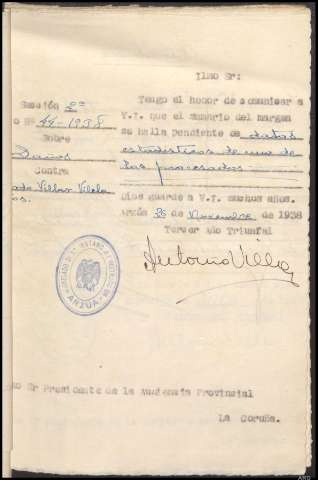 ILMO Sr:
Sección 2ª
o Nº 44-1938
Sobre
Daños
Contra
ado Villar Vilela
os.
Tengo el honor de comunicar a
V.I. que el sumario del margen
se halla pendiente de datos
estadísticos de uno de
los procesados
Dios guarde a V.I. muchos años.
Arzúa 26 de Noviembre de 1938
Tercer Año Triunfal
Antonio Villa
JUZGADO DE INSTRUCCION
ARZUA
mo Sr Presidente de la Audiencia Provincial
La Coruña.